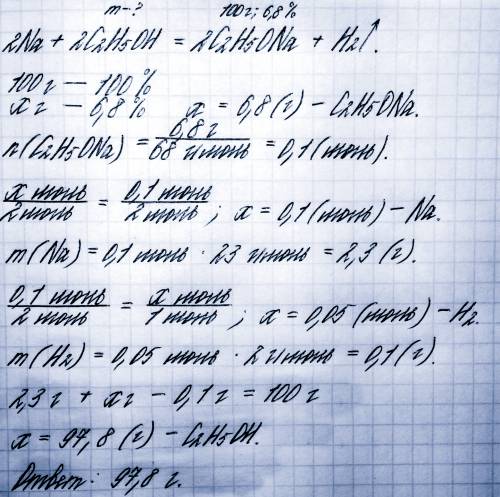 m-? 100г; 6,8%
2Na + 2C2H5OH = 2C2H5ONa + H2↑.
100 г — 100%
x г — 6,8% x = 6,8 (г) - C2H5ONa.
n(C2H5ONa) = 6,8 г / 68 г/моль = 0,1 (моль).
x моль / 2 моль = 0,1 моль / 2 моль ; x = 0,1 (моль) - Na.
m(Na) = 0,1 моль · 23 г/моль = 2,3 (г).
0,1 моль / 2 моль = x моль / 1 моль ; x = 0,05 (моль) - H2.
m(H2) = 0,05 моль · 2 г/моль = 0,1 (г).
2,3 г + x г - 0,1 г = 100 г
x = 97,8 (г) - C2H5OH.
Ответ: 97,8 г.